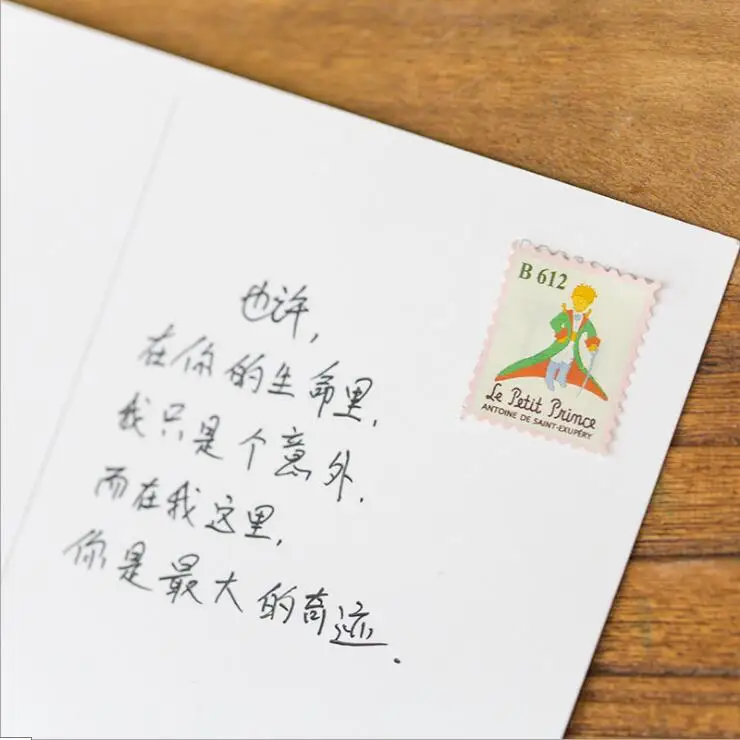 也许,
在你的生命里,
我只是个意外,
而在我这里,
你是最大的奇迹.
B 612
Le Petit Prince
ANTOINE DE SAINT-EXUPÉRY